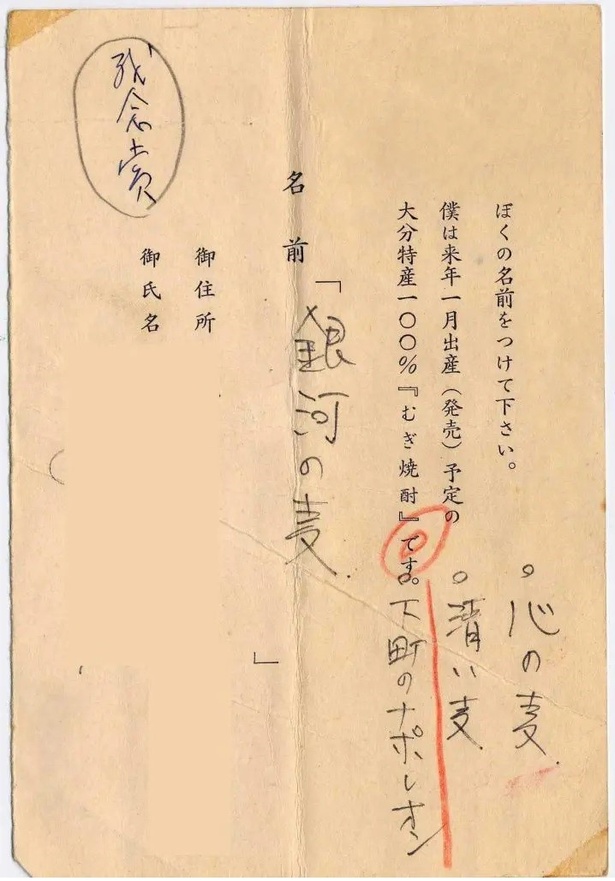 ぼくの名前をつけて下さい。
僕は来年一月出産（発売）予定の
大分特産一〇〇％『むぎ焼酎』です。
。心の麦.
。清い麦.
。下町のナポレオン
名前
「銀河の麦.
」
御住所
御氏名
残念賞